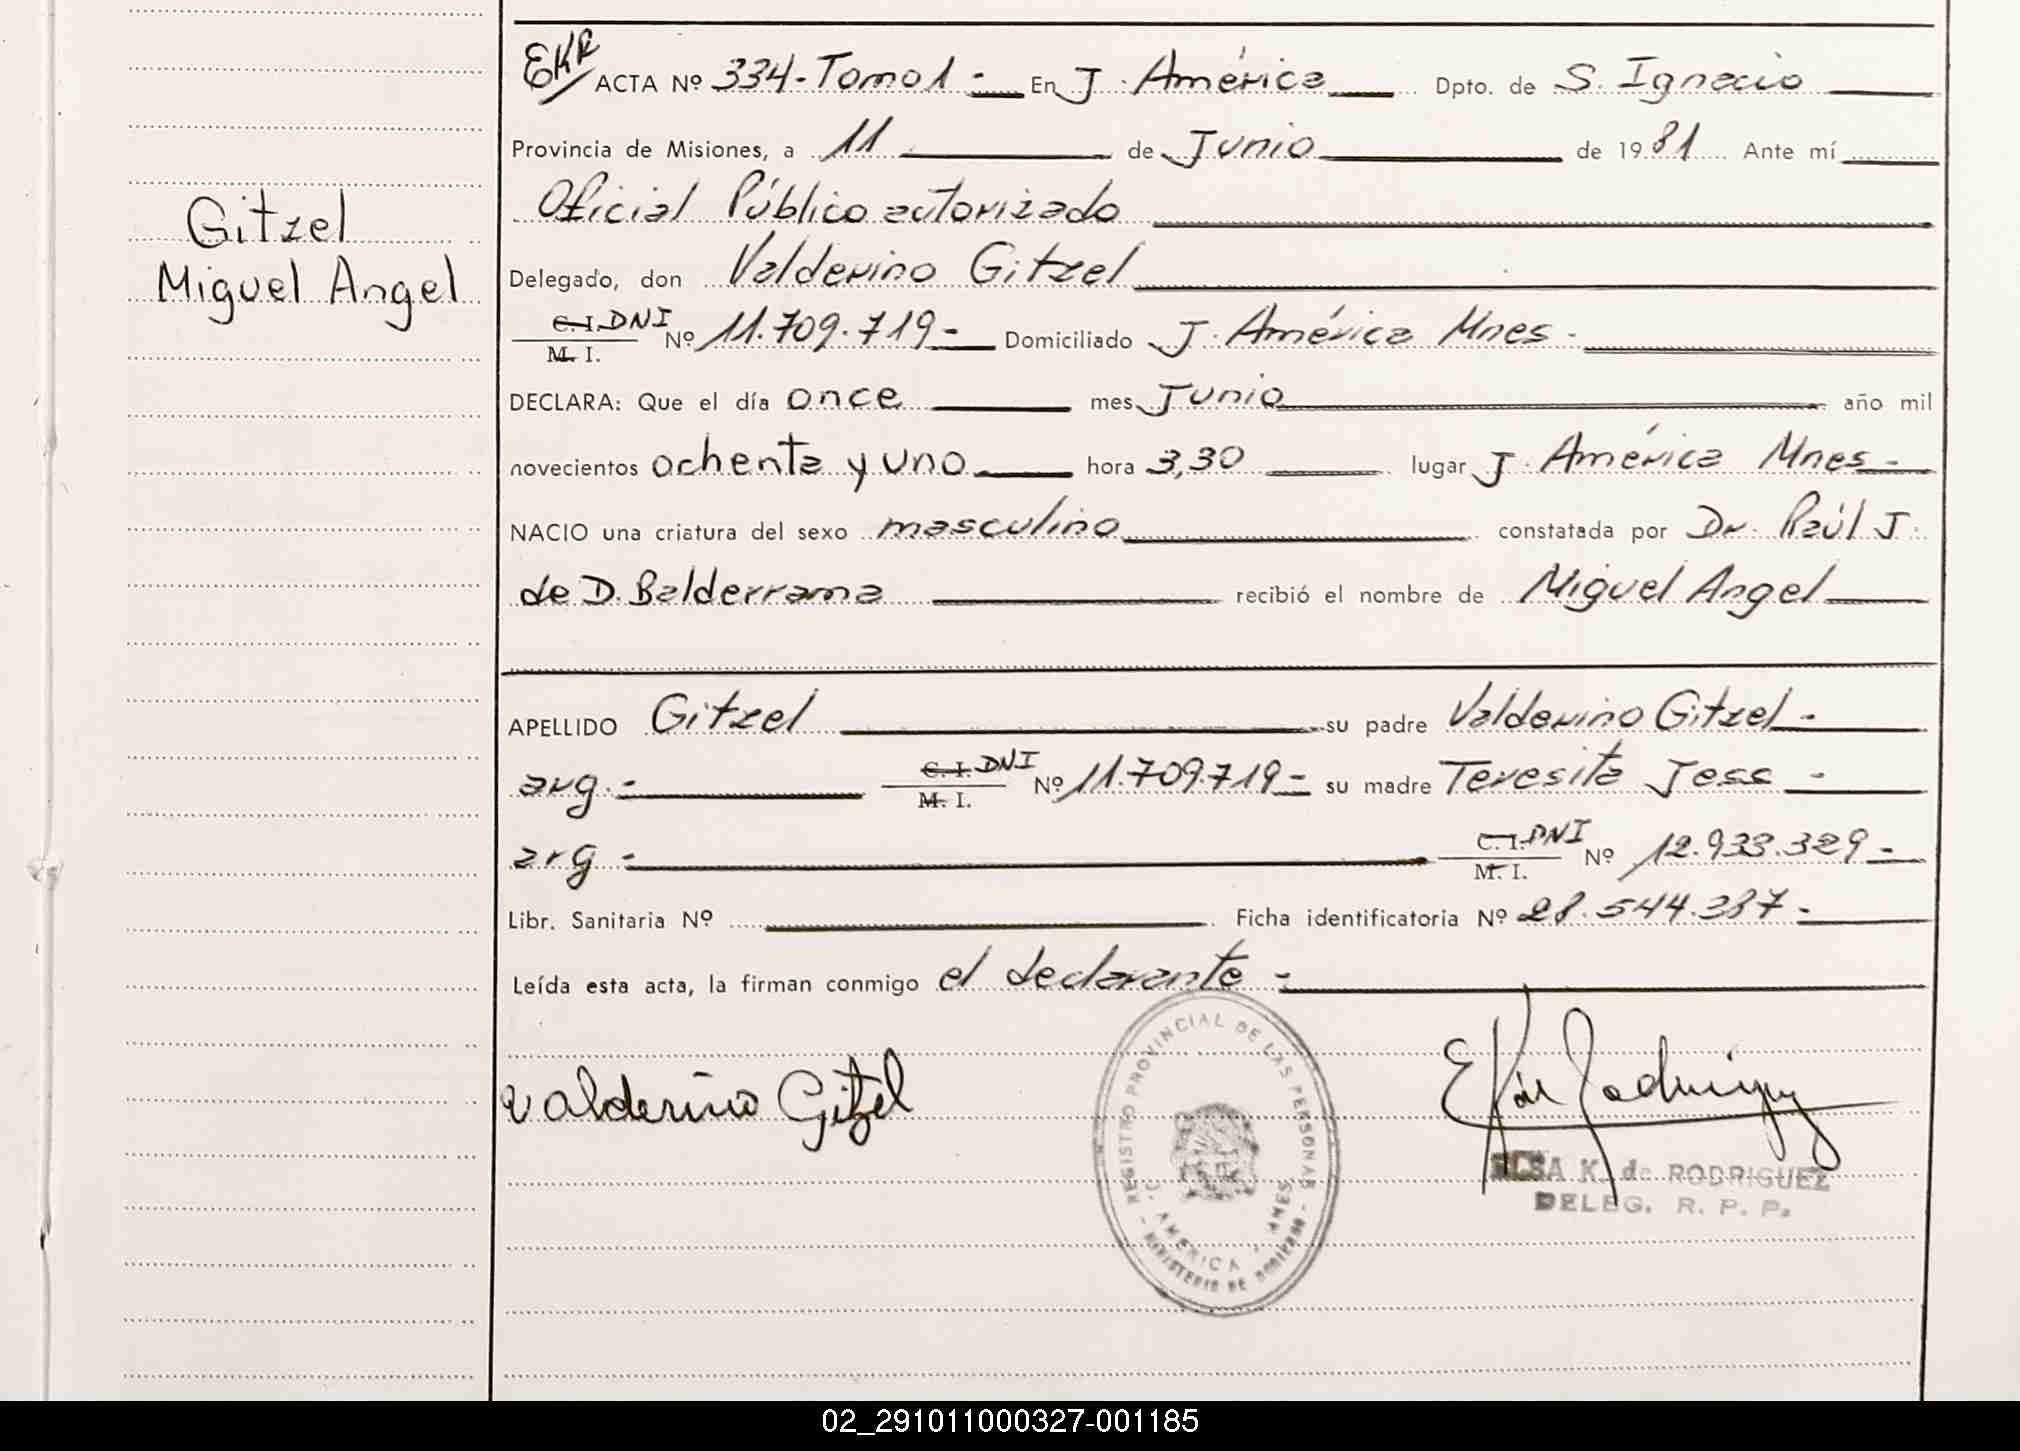 EKR ACTA Nº 334-Tomo 1 - En J. América Dpto. de S. Ignacio
Provincia de Misiones, a 11 de Junio de 1981 Ante mí
Oficial Público autorizado
Gitzel
Delegado, don Valderino Gitzel
Miguel Angel
C. I. DNI Nº 11.709.719- Domiciliado J. América Mnes.
M. I.
DECLARA: Que el día once mes Junio año mil
novecientos ochenta y uno hora 3,30 lugar J. América Mnes-
NACIO una criatura del sexo masculino constatada por Dr. Raúl J.
de D. Balderrama recibió el nombre de Miguel Angel
APELLIDO Gitzel su padre Valderino Gitzel-
arg.- C. I. DNI Nº 11.709.719- su madre Teresita Jess -
M. I.
arg - C. I. DNI Nº 12.933.329-
M. I.
Libr. Sanitaria Nº Ficha identificatoria Nº 28.544.387-
Leída esta acta, la firman conmigo el declarante-
Valderino Gitzel
REGISTRO PROVINCIAL DE LAS PERSONAS
AMERICA
MINISTERIO DE GOBIERNO
ELSA K. de RODRIGUEZ
DELEG. R. P. P.
02_291011000327-001185